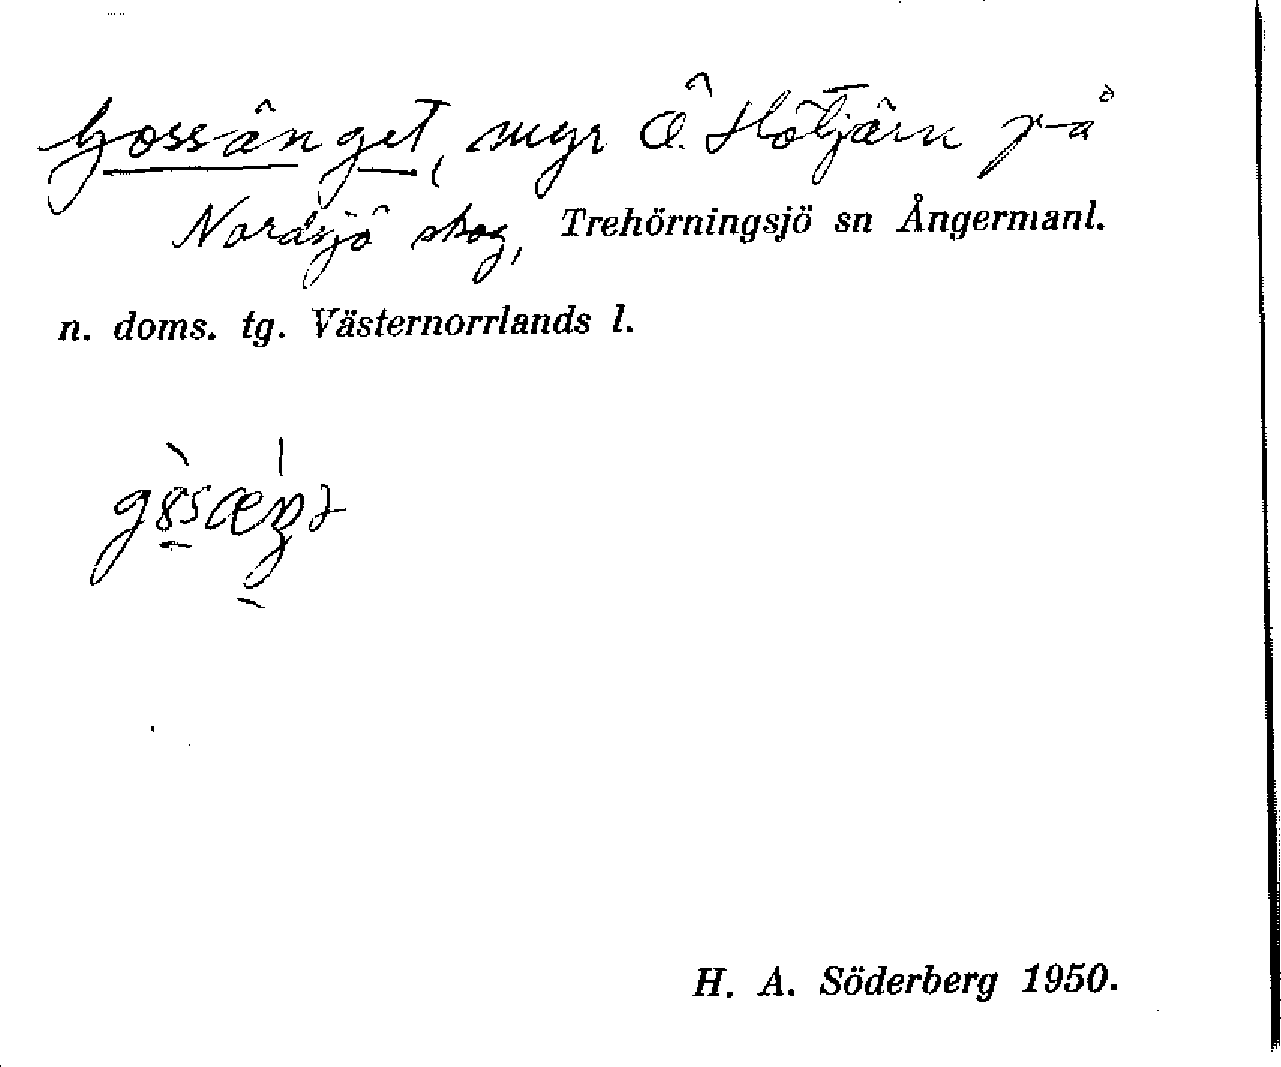 Gossänget, myr Ö. Hötjärn på
Nordsjö skog, Trehörningsjö sn Ångermanl.
n. doms. tg. Västernorrlands l.
H. A. Söderberg 1950.